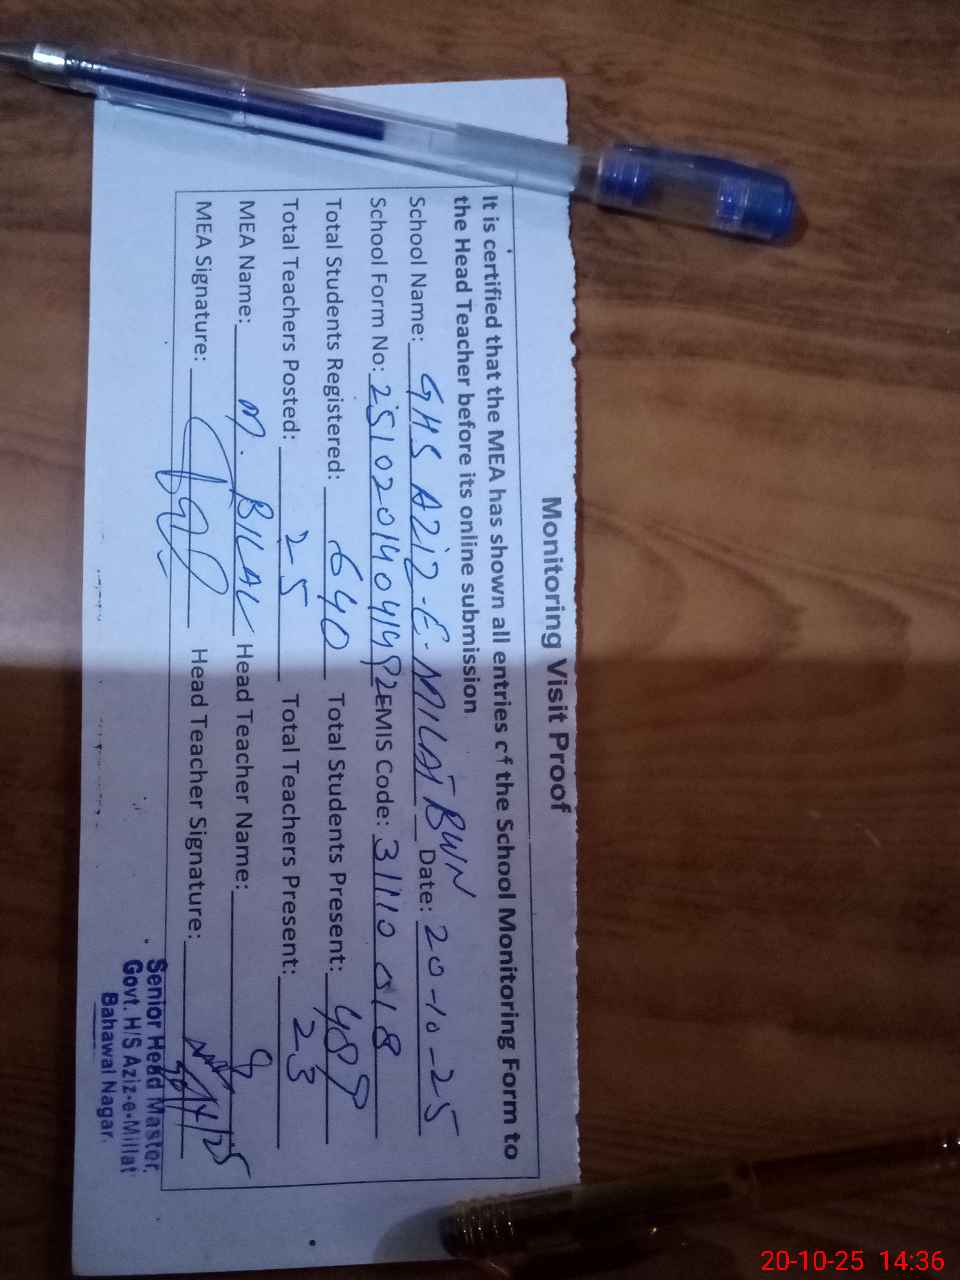 Monitoring Visit Proof
It is certified that the MEA has shown all entries of the School Monitoring Form to
the Head Teacher before its online submission
School Name: GHS AZIZ-E-MILAT BWN Date: 20-10-25
School Form No: 25102014041492 EMIS Code: 31110018
Total Students Registered: 640 Total Students Present: 489
Total Teachers Posted: 25 Total Teachers Present: 23
MEA Name: M. BILAL Head Teacher Name:
MEA Signature: Head Teacher Signature:
Senior Head Master.
Govt. H/S Aziz-e-Millat
Bahawal Nagar.
20-10-25 14:36